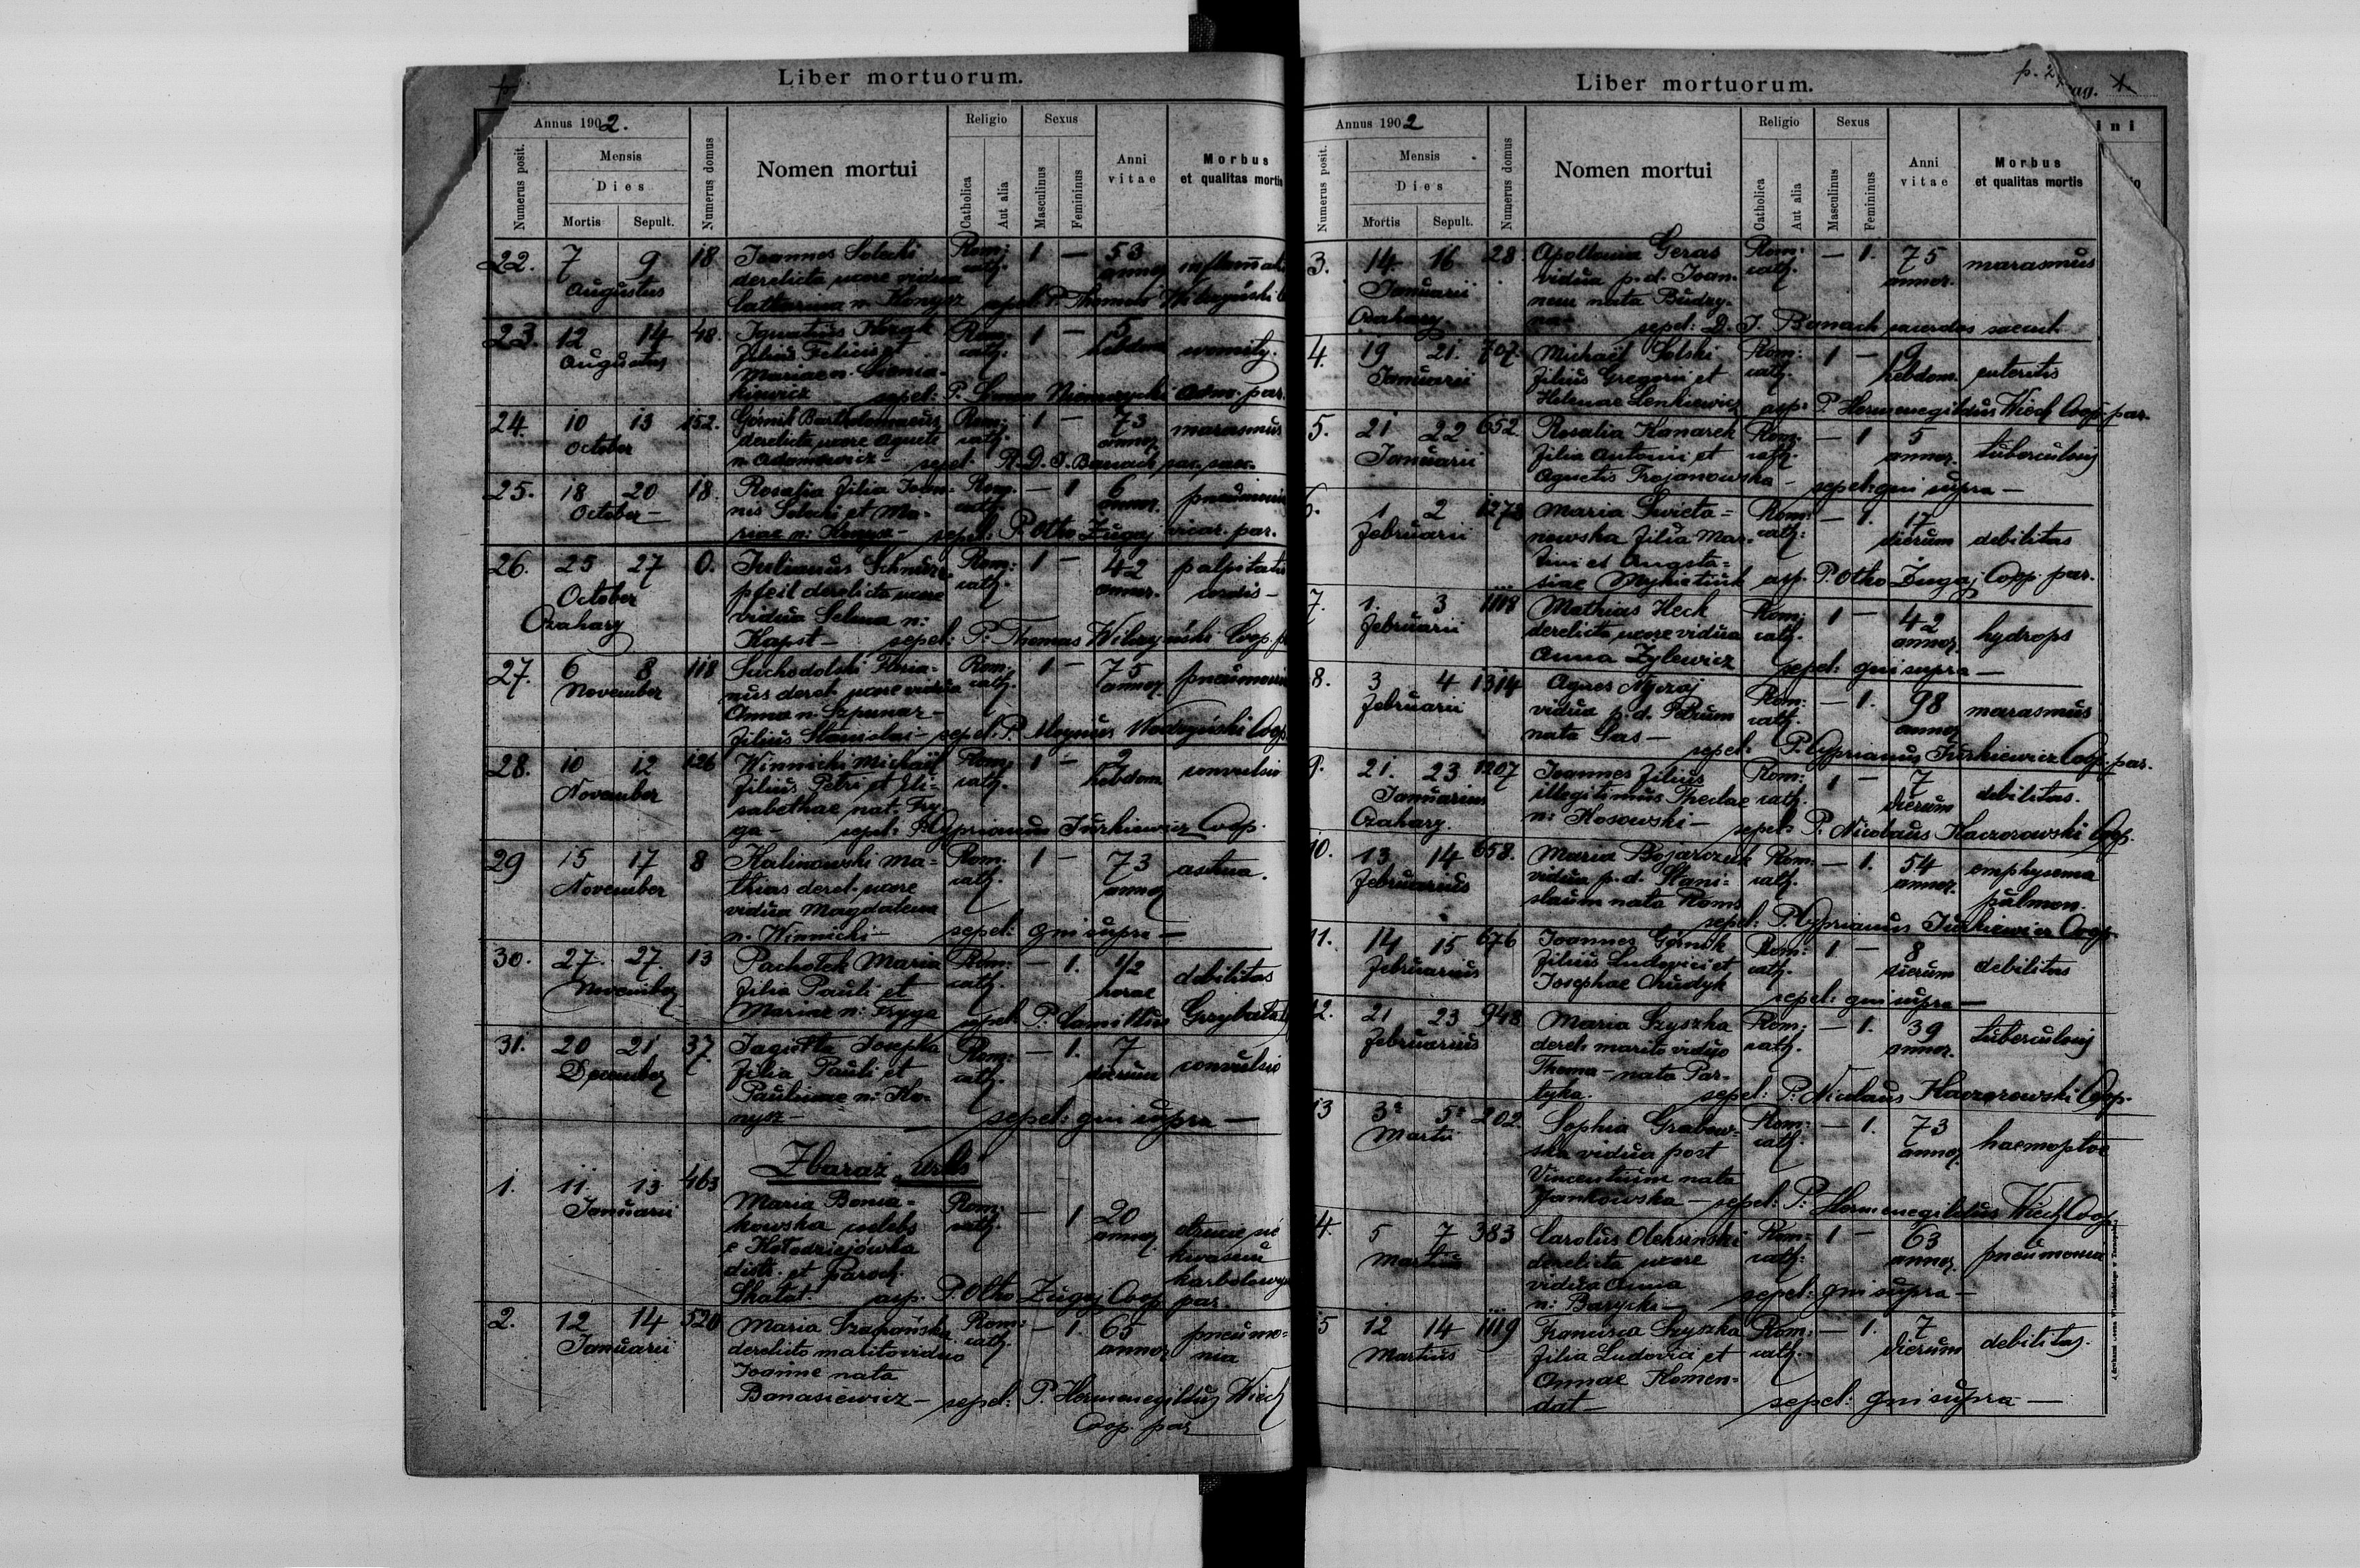 Liber mortuorum.
Annus 1902.
Numerus posit.
Mensis
Dies
Mortis Sepult.
Numerus domus
Nomen mortui
Religio
Catholica
Aut alia
Sexus
Masculinus
Femininus
Anni vitae
Morbus
et qualitas mortis
22. 7 9 18 Joannes Solecki Rom: 1 — 53
Augustus derelicta uxore vidua cath. annor
Catharina n. Konysz sepel: P. Thomas Wilczyński
23. 12 14 48. Ignatius Rom: 1 — 5
Augustus filius Felicis et cath. hebdom
Mariae n.
sepel: P. Simon Adm. par.
24. 10 13 152. Górnik Bartholomaeus Rom: 1 — 73 marasmus
October derelicta uxore Agnete cath. annor
n. Adamowicz — sepel: R. D. J. Banach sac. saec.
25. 18 20 18. Rosalia filia Joan- Rom. — 1 6
October — nis Solecki et Ma- cath. annor.
riae n: — sepel: P. Otho Zugaj vicar. par.
26. 25 27 0. Julianus Rom: 1 — 42
October derelicta uxore cath. annor. cordis —
Czahary vidua Selma n:
Kapst — sepel: P: Thomas Wilczyński Coop.
27. 6 8 118 Suchodolski Floria- Rom: 1 — 75
November nus derel. uxore vidua cath. annor.
Anna n. Szpunar —
filius Stanislai — sepel: P.
28. 10 12 126 Winnicki Michaël Rom: 1 — 2 convulsio
November filius Petri et Eli- cath. hebdom
sabethae nat. Fry-
ga — sepel: P. Cyprianus Jurkiewicz Coop.
29 15 17 8 Kalinowski Ma- Rom. 1 — 73
November thias derel. uxore cath. annor
vidua Magdalena
n. Winnicki — sepel: qui supra —
30. 27. 27. 13 Pachołek Maria Rom: — 1. 1/2 debilitas
November filia Pauli et cath. horae
Mariae n: Fryga sepel: P. Camillus
31. 20 21 37. Jagiełła Josepha Rom: — 1. 7 convulsio
December filia Pauli et cath. dierum
Paulinae n: Ko-
nysz — sepel: qui supra —
Zbaraż urbs
1. 11. 13. 463 Maria Bonia- Rom: — 1 20
Januarii kowska cath. annor
e Hołodziejówka
distr. et Paroch.
Skałat. asp. P. Otho Zugaj Coop. par.
2. 12 14 520 Maria Rom: — 1. 65 pneumo-
Januarii derelicto marito viduo cath. annor nia
Joanne nata
Banasiewicz — sepel: P. Hermenegildus Wiech
Coop. par
Liber mortuorum.
p. 2
Annus 1902
Numerus posit.
Mensis
Dies
Mortis Sepult.
Numerus domus
Nomen mortui
Religio
Catholica
Aut alia
Sexus
Masculinus
Femininus
Anni vitae
Morbus
et qualitas mortis
3. 14 16 28. Apollonia Geras Rom: — 1. 75 marasmus
Januarii vidua p. d. Joan- cath. annor.
Czahary nem nata Budzy-
na — sepel: D. J. Banach sacerdos saecul.
4. 19 21. 707. Michaël Solski Rom: 1 — 9 enteritis
Januarii filius Gregorii et cath. hebdom.
Helenae Lenkiewicz asp: P. Hermenegildus Wiech Coop. par.
5. 21 22 652. Rosalia Kanarek Rom: — 1 5 tuberculosis
Januarii filia Antonii et cath. annor.
Agnetis Trojanowska — sepel: qui supra —
6. 1 2 1272 Maria Swieta- Rom: — 1. 17 debilitas
Februarii nowska filia Mar- cath: dierum
tini et
asp. P. Otho Zugaj Coop. par.
7. 1. 3 1118 Mathias Heck Rom: 1 — 42 hydrops
Februarii derelicta uxore vidua cath. annor
Anna Żylewicz sepel: qui supra —
8. 3 4 1314 Agnes Rom: — 1. 98 marasmus
Februarii vidua p. d. Petrum cath. annor
nata Sas — sepel: P. Cyprianus Jurkiewicz Coop. par.
9. 21. 23 1207 Joannes filius Rom: 1 — 7 debilitas.
Januarius illegitimus Theclae cath. dierum
Czahary. n: Kosowski — sepel: P. Nicolaus Kaczorowski Coop.
10. 13 14 658. Maria Bojarczuk Rom: — 1. 54 emphysema
Februarius vidua p. d. Stani- cath. annor. pulmon.
slaum nata Roms sepel: P. Cyprianus Jurkiewicz Coop.
11. 14 15 676 Joannes Górnik Rom: 1 — 8 debilitas
Februarius filius Ludovici et cath. dierum
Josephae Chudyk sepel: qui supra —
12. 21 23 948 Maria Szyszka Rom: — 1. 39 tuberculosis
Februarius derel. marito viduo cath. annor.
Thoma — nata Par-
tyka. sepel: P. Nicolaus Kaczorowski Coop.
13 3 5 202 Sophia Grabow- Rom: — 1. 73 haemoptoe
Martii ska vidua post cath. annor
Vincentium nata
Jankowska — sepel: P: Hermenegildus Wiech Coop.
14. 5 7 383 Carolus Oleksinski Rom: 1 — 63 pneumonia
Martius derelicta uxore cath: annor.
vidua Anna
n: Barycki — sepel: qui supra —
15 12 14 1119 Francisca Szyszka Rom: — 1. 7 debilitas.
Martius filia Ludovici et cath. dierum
Annae Komen-
dat — sepel: qui supra —